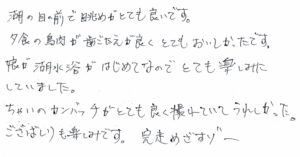 湖の目の前で眺めがとても良いです。
夕食の鳥肉が歯ごたえが良くとてもおいしかったです。
娘が湖水浴がはじめてなのでとても楽しみに
していました。
ちゃいのカンバッチがとても良く撮れていてうれしかった。
ござばしりも楽しみです。完走めざすゾー